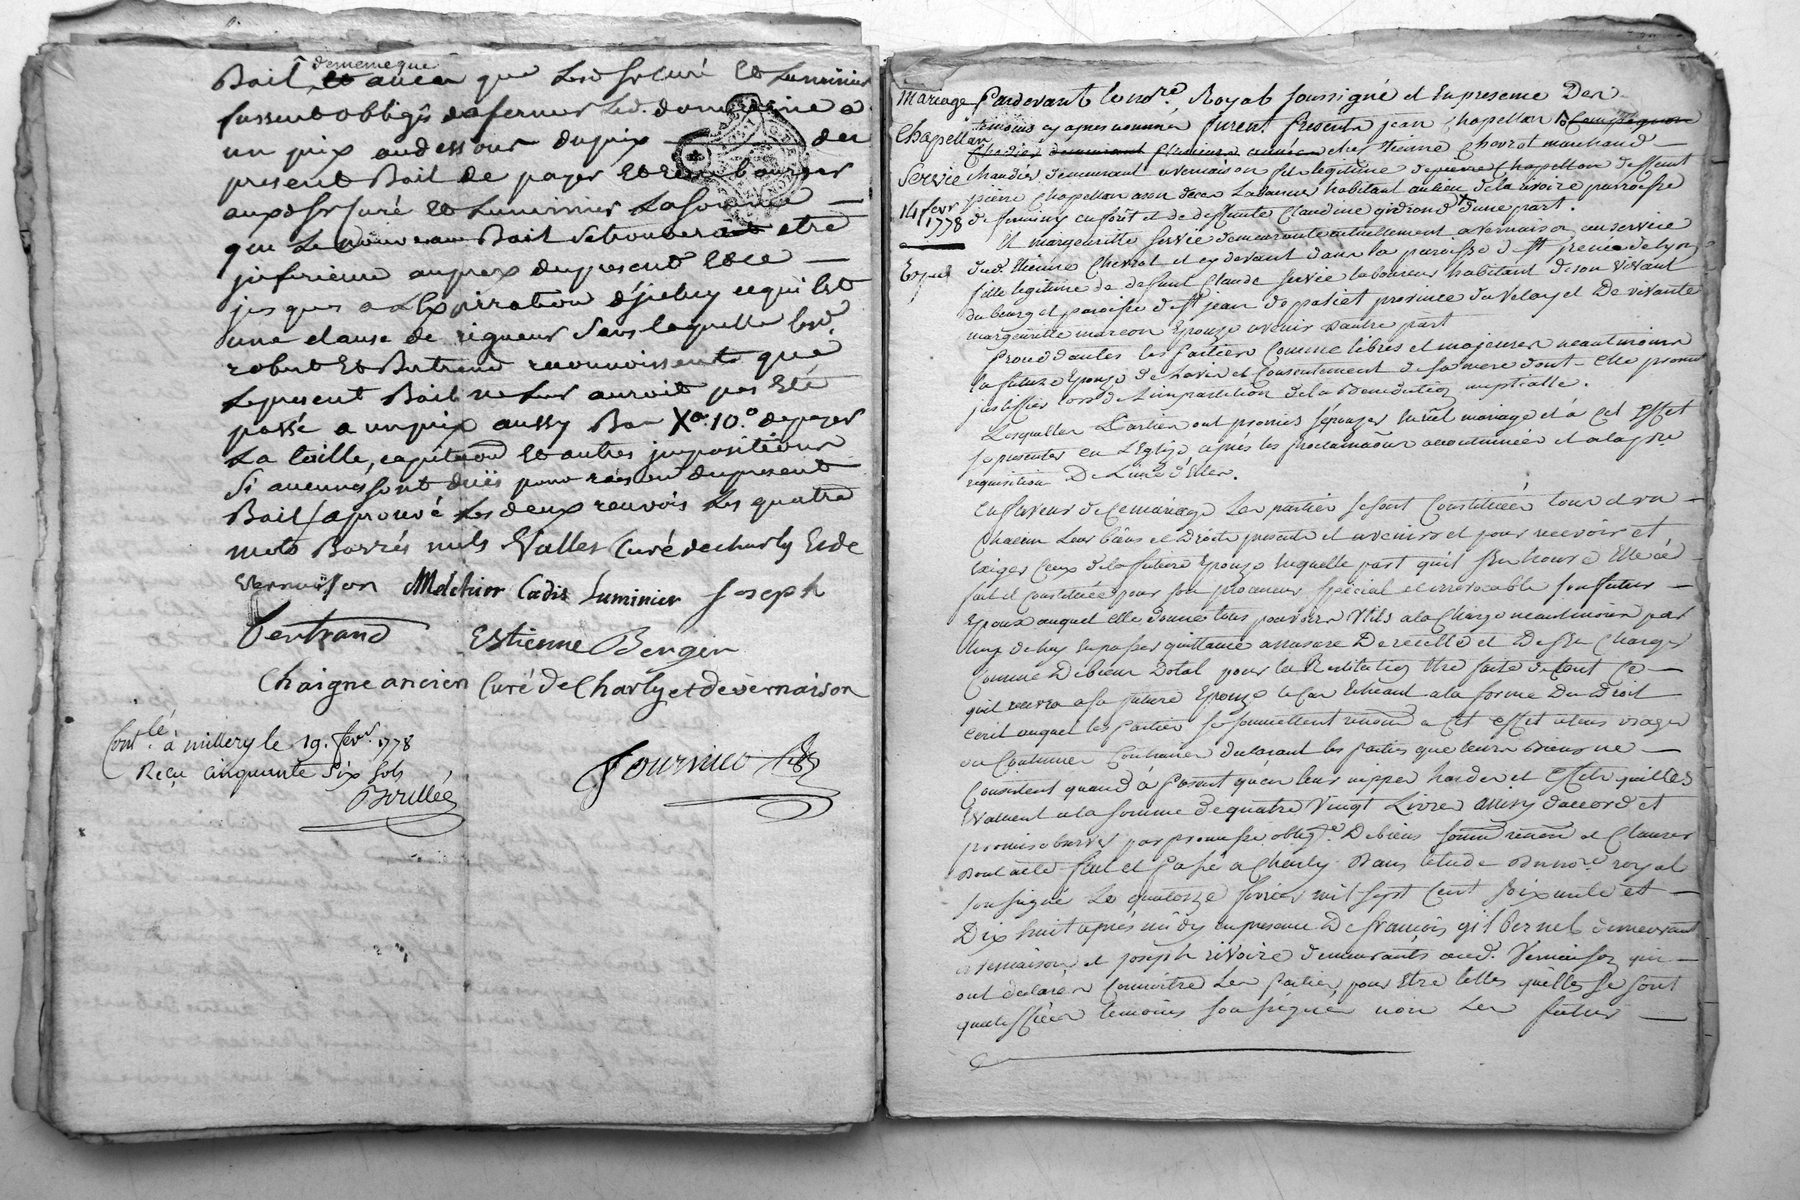 Bail, demême que
et aucas que lesd. sr curé et Luminier
fussent obligés daffermer led. domaine a
un prix audessous duprix du
present Bail de payer et rembourser
auxd. sr Curé et Luminier La somme
que Le nouveau Bail setrouverait etre
inferieur auprix dupresent et ce
jusques a Lexpiration d'jceluy cequi est
une clause de rigueur sans laquelle lesd.
robert et Bertrand reconnoissent que
Lepresent Bail ne leur auroit pas eté
passé a un prix aussy Bas Xo. 10.o depayer
La taille, capitaõn et autres jmpositions
si aucunes sont duës pour raison dupresent
Bail / aprouvé Les deux renvois Les quatre
mots Barrés nuls Valles Curé decharly et de
Vernaison Melchior Cadis Luminier joseph
Bertrand Estienne Bergir
Chaigne ancien Curé de Charly et de vernaison
Contlé. à millery le 19. fevr. 1778
Reçu cinquante six sols
Fournier
Mariage
Chapellan
Servie
14 fevr
1778
Expé
Pardevant le nore. Royal soussigné et en presence Des
temoins cy apres nommés furent presents jean Chapellan
demeurant chez Etienne Chevrat marchand
demeurant a vernaison fils legitime de deffunt
pierre Chapellan laboureur habitant au lieu de la rivoire parroisse
de firminy en forêt et de deffunte Claudine d'une part.
Et margueritte Servie demeurante actuellement a vernaison au service
dud. Etienne Chevrat et cy devant dans la paroisse de st jrenée de Lyon
fille legitime de defunt Claude Servie laboureur habitant de son vivant
du bourg et paroisse de st jean province du Velay et De vivante
margueritte marcon Epouze avenir dautre part
Procedantes les parties comme libres et majeures neantmoins
la future Epouze de Lavis et Consentement de sa mere dont Elle promet
justiffier lors de Limpartition de la Benediction nuptialle.
Lesquelles Parties ont promis s'épouzer en vrai mariage et à cet effet
se presenter en L'Eglize après les proclamaõns accoutumées et a la pre
requisition De L'une d'Elles.
En faveur de Ce mariage Les parties se sont Constituées tous et un
Chacun Leurs biens et Droits presents et avenirs et pour recevoir et
Exiger ceux de la future Epouze laquelle part quil s'en trouve Elle a
fait et constitué pour son procureur special et irrevocable son futur
Epoux auquel elle donne tous pouvoirs utils a la charge neantmoins par
luy de luy en passer quittance a mesure De recette et De s'en charger
comme De biens Dotal pour la Restitution etre faite de tout ce
quil recevra a sa future Epouze le cas Echeant a la forme Du Droit
ecrit auquel les parties se soumettent renonçant a cet effet a tous usages
ou Coutumes Contraires declarant les parties que leurs biens ne
Consistent quand à present qu'en leurs nippes hardes et Effets quelles
Evaluent a la somme de quatre Vingt Livres ainsy d'accord et
promis observer par promesse oblige. De biens soumõn renõn et Clauses
Dont acte fait et passé a Charly Dans l'etude Du nore. royal
soussigné Le quatorze fevrier mil sept Cent Soixante et
Dix huit après midy en presence De françois gilibernel demeurant
a vernaison et joseph rivoire demeurants aud. Vernaison qui
ont declarés Connoître Les parties pour Etre telles quelles se sont
qualiffiées temoins soussignés non Les futurs